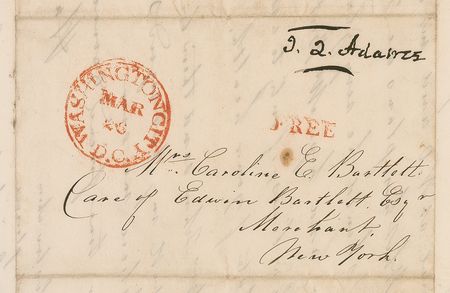 J. Q. Adams
WASHINGTON CITY D.C.
MAR
26
FREE
Mrs. Caroline E. Bartlett.
Care of Edwin Bartlett, Esqr
Merchant,
New York.